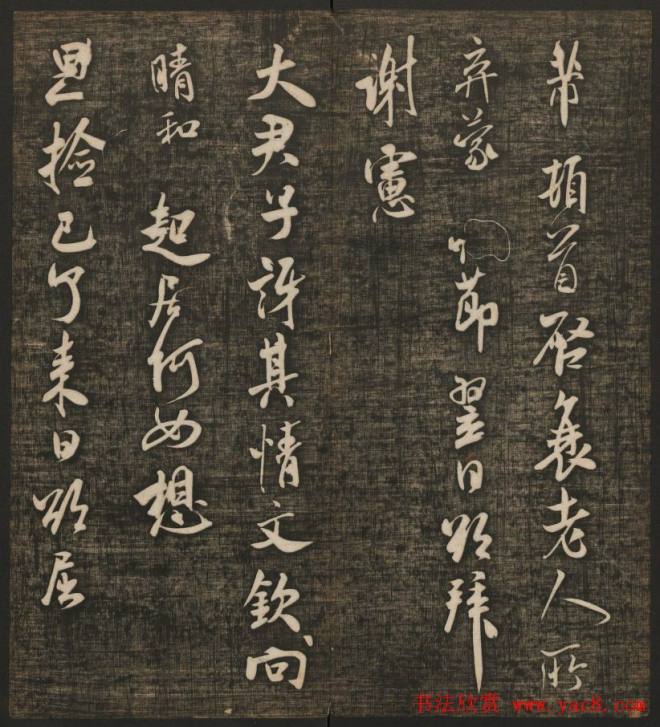 芾頓首啟衰老人所
弃蒙 節翌日欲拜
謝憲
大君子訝其情文欽向
晴和 起居何如想
思撿已了來日欲屈
书法欣赏 www.yac8.com